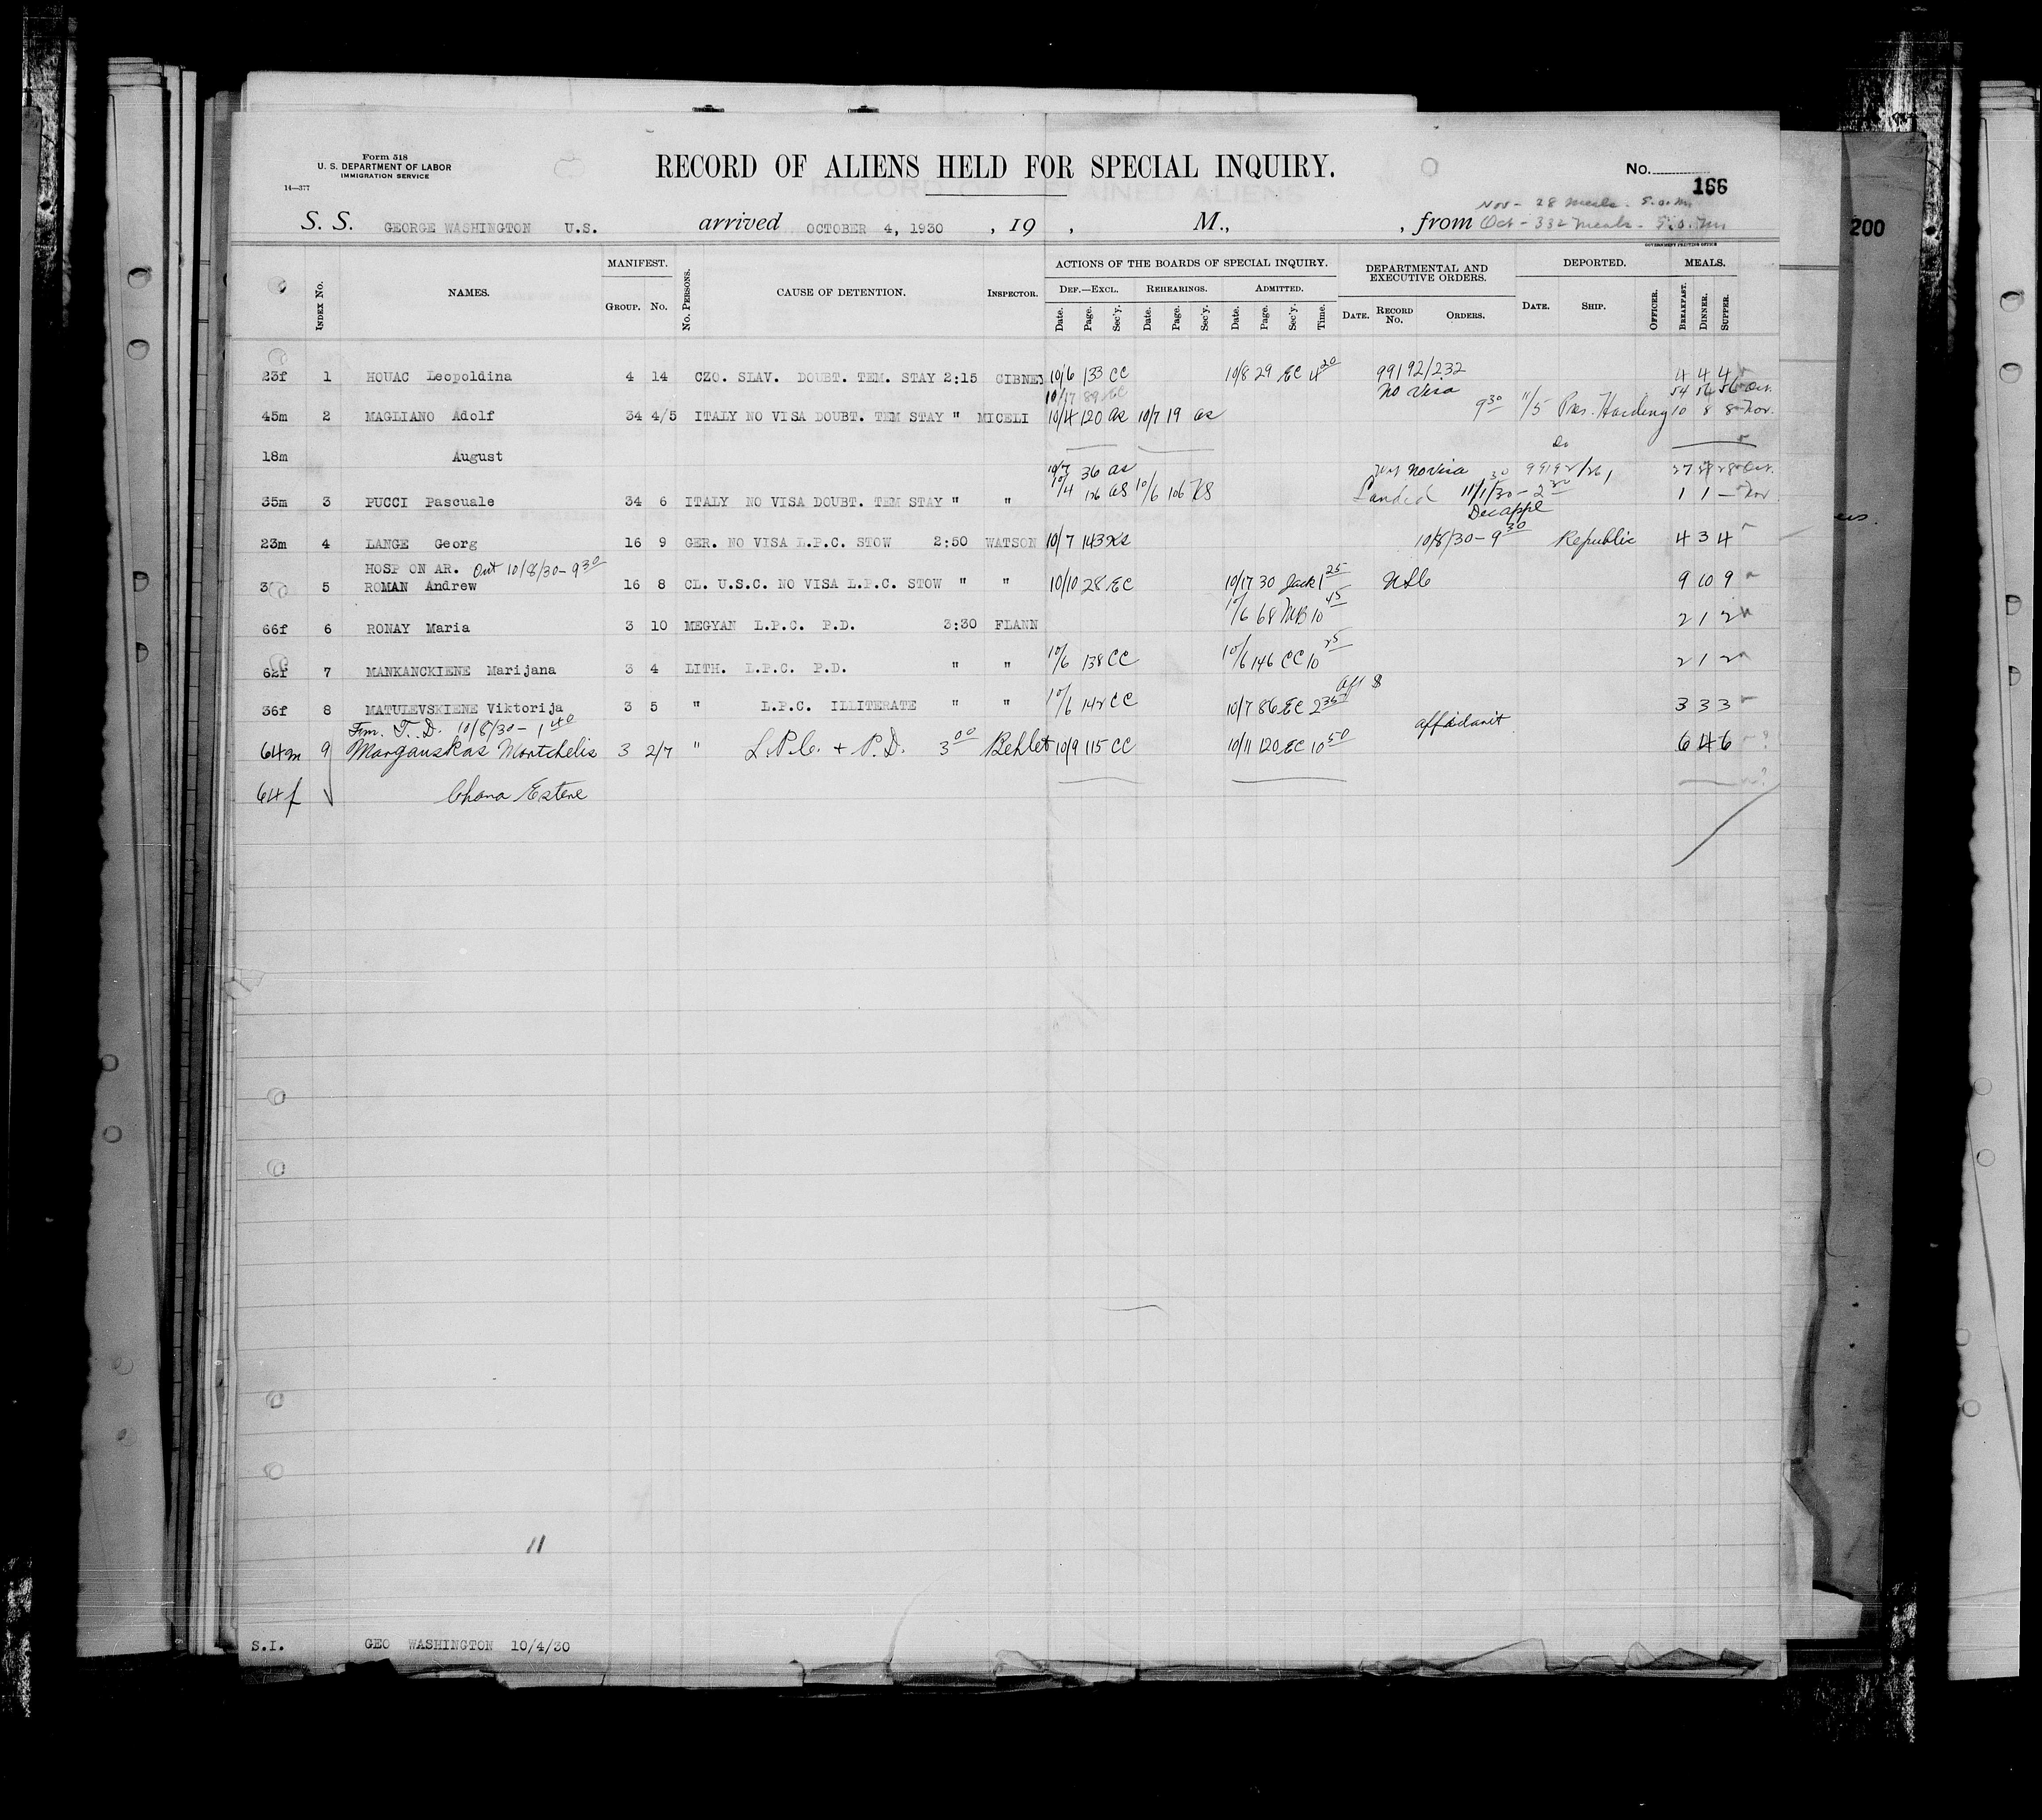 Form 518
U. S. DEPARTMENT OF LABOR
IMMIGRATION SERVICE
14—377
RECORD OF ALIENS HELD FOR SPECIAL INQUIRY.
No. 166
Nov - 28 meals -
S. S. GEORGE WASHINGTON U.S. arrived OCTOBER 4, 1930 , 19 , M., , from Oct - 332 meals -
200
GOVERNMENT PRINTING OFFICE
INDEX No. NAMES. MANIFEST. GROUP. No. No. PERSONS. CAUSE OF DETENTION. INSPECTOR. ACTIONS OF THE BOARDS OF SPECIAL INQUIRY. DEPARTMENTAL AND EXECUTIVE ORDERS. DEPORTED. MEALS.
DEF.—EXCL. REHEARINGS. ADMITTED.
Date. Page. Sec'y. Date. Page. Sec'y. Date. Page. Sec'y. Time. DATE. RECORD No. ORDERS. DATE. SHIP. OFFICER. BREAKFAST. DINNER. SUPPER.
23f 1 HOUAC Leopoldina 4 14 CZO. SLAV. DOUBT. TEM. STAY 2:15 CIBNEY 10/6 133 CC 10/8 29 EC 4 20 99192/232 4 4 4
10/17 89 EC No Visa 54 56 56 Oct.
45m 2 MAGLIANO Adolf 34 4/5 ITALY NO VISA DOUBT. TEM STAY " MICELI 10/4 120 as 10/7 19 as 9 30 11/5 Pres. Harding 10 8 8 Nov.
18m August Do
10/7 36 as No Visa 27 28 28 Oct.
35m 3 PUCCI Pascuale 34 6 ITALY NO VISA DOUBT. TEM STAY " " 10/4 126 as 10/6 106 Landed 11/1/30 - 2 30 1 1 — Nov
23m 4 LANGE Georg 16 9 GER. NO VISA L.P.C. STOW 2:50 WATSON 10/7 143 10/8/30 - 9 30 Republic 4 3 4
HOSP ON AR. Out 10/8/30 - 9 30
5 ROMAN Andrew 16 8 CL. U.S.C. NO VISA L.P.C. STOW " " 10/10 28 EC 10/17 30 Jack 1 25 9 10 9
66f 6 RONAY Maria 3 10 MEGYAN L.P.C. P.D. 3:30 FLANN 10/6 68 MB 10 45 2 1 2
62f 7 MANKANCKIENE Marijana 3 4 LITH. L.P.C. P.D. " " 10/6 138 CC 10/6 146 CC 10 25 2 1 2
36f 8 MATULEVSKIENE Viktorija 3 5 " L.P.C. ILLITERATE " " 10/6 142 CC 10/7 86 EC 2 35 3 3 3
Fm. T. D. 10/8/30 - 1 40 affidavit
64m 9 Morganskas Mortchelis 3 2/7 " L.P.C. + P.D. 3 00 Behlet 10/9 115 CC 10/11 120 EC 10 50 6 4 6
64f Chana Estere
11
S.I. GEO WASHINGTON 10/4/30